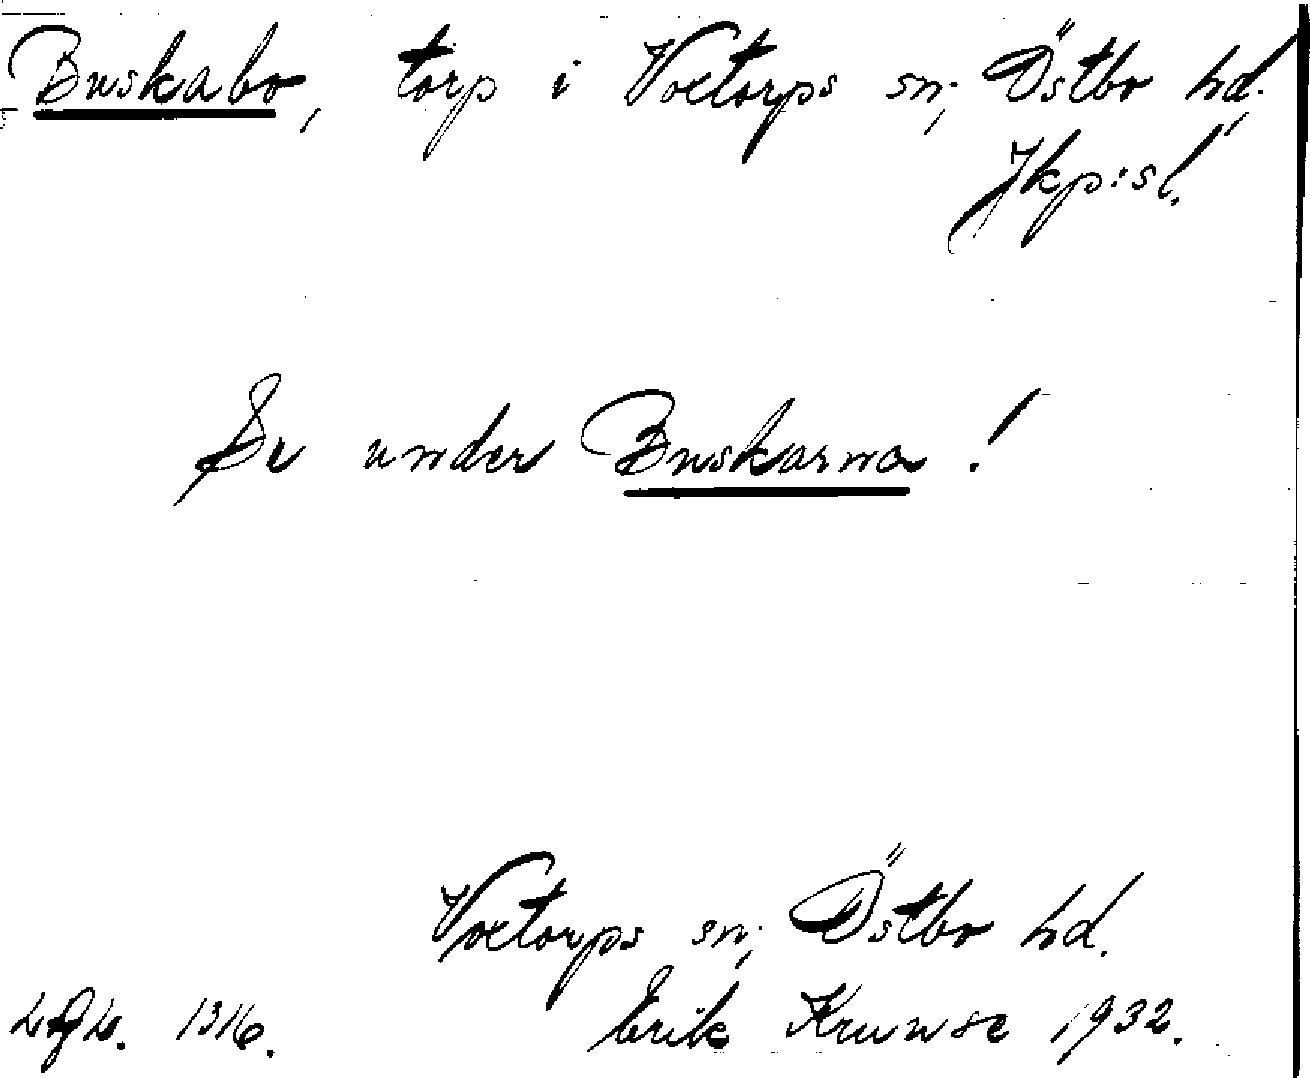 Buskabo, torp i Voxtorps sn, Östbo hd,
Jkp:s l.
Se under Buskarna!
Voxtorps sn, Östbo hd.
1316. Erik Krunse 1932.